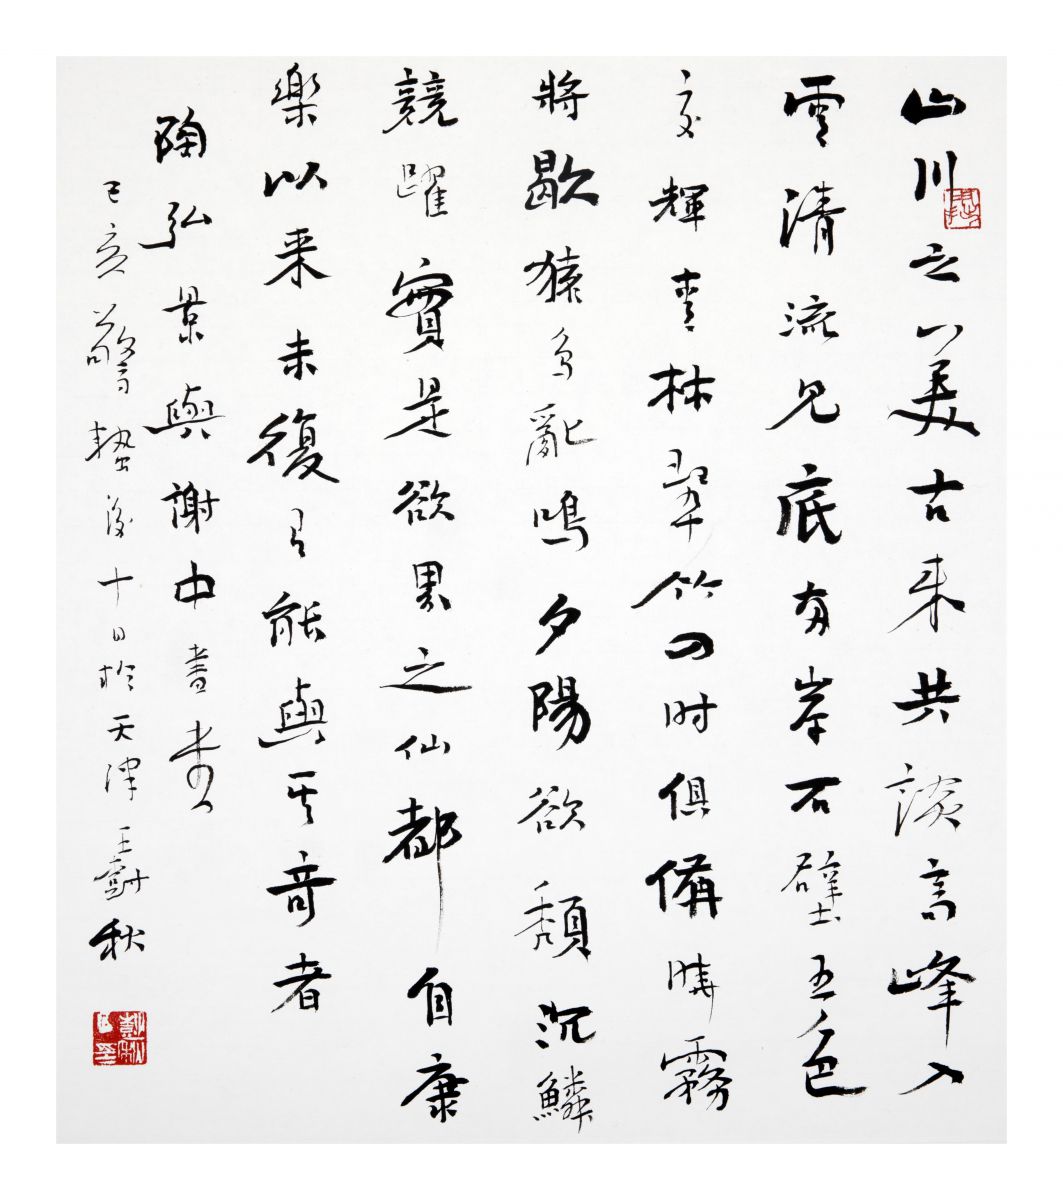 山川之美古来共談高峰入
雲清流見底兩岸石壁五色
交輝青林翠竹四时俱備曉霧
將歇猿鳥亂鳴夕陽欲頹沉鱗
競躍實是欲界之仙都自康
樂以来未復有能與其奇者
陶弘景與謝中書書
己亥驚蟄後十日於天津王秋